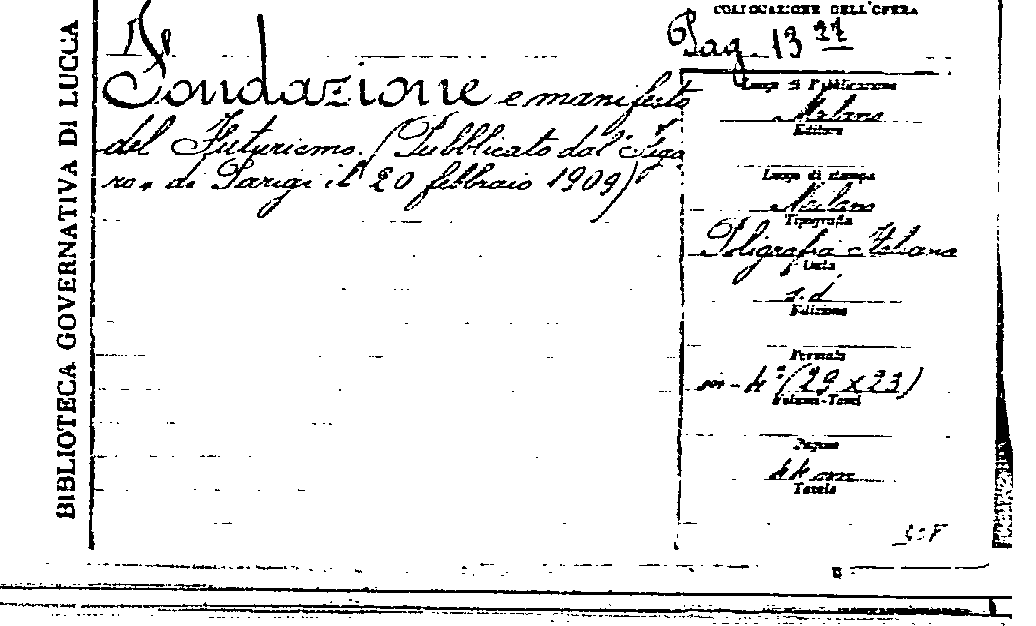 BIBLIOTECA GOVERNATIVA DI LUCCA
COLLOCAZIONE DELL'OPERA
Pag. 13 27
Fondazione e manifesto
del Futurismo. (Pubblicato dal "Figa
ro" di Parigi il 20 febbraio 1909)
Luogo di Pubblicazione
Milano
Editore
Luogo di stampa
Milano
Tipografia
Poligrafia Italiana
Data
s. d.
Edizione
Formato
in-4° (29 x 23)
Volumi-Tomi
Pagine
Tavole